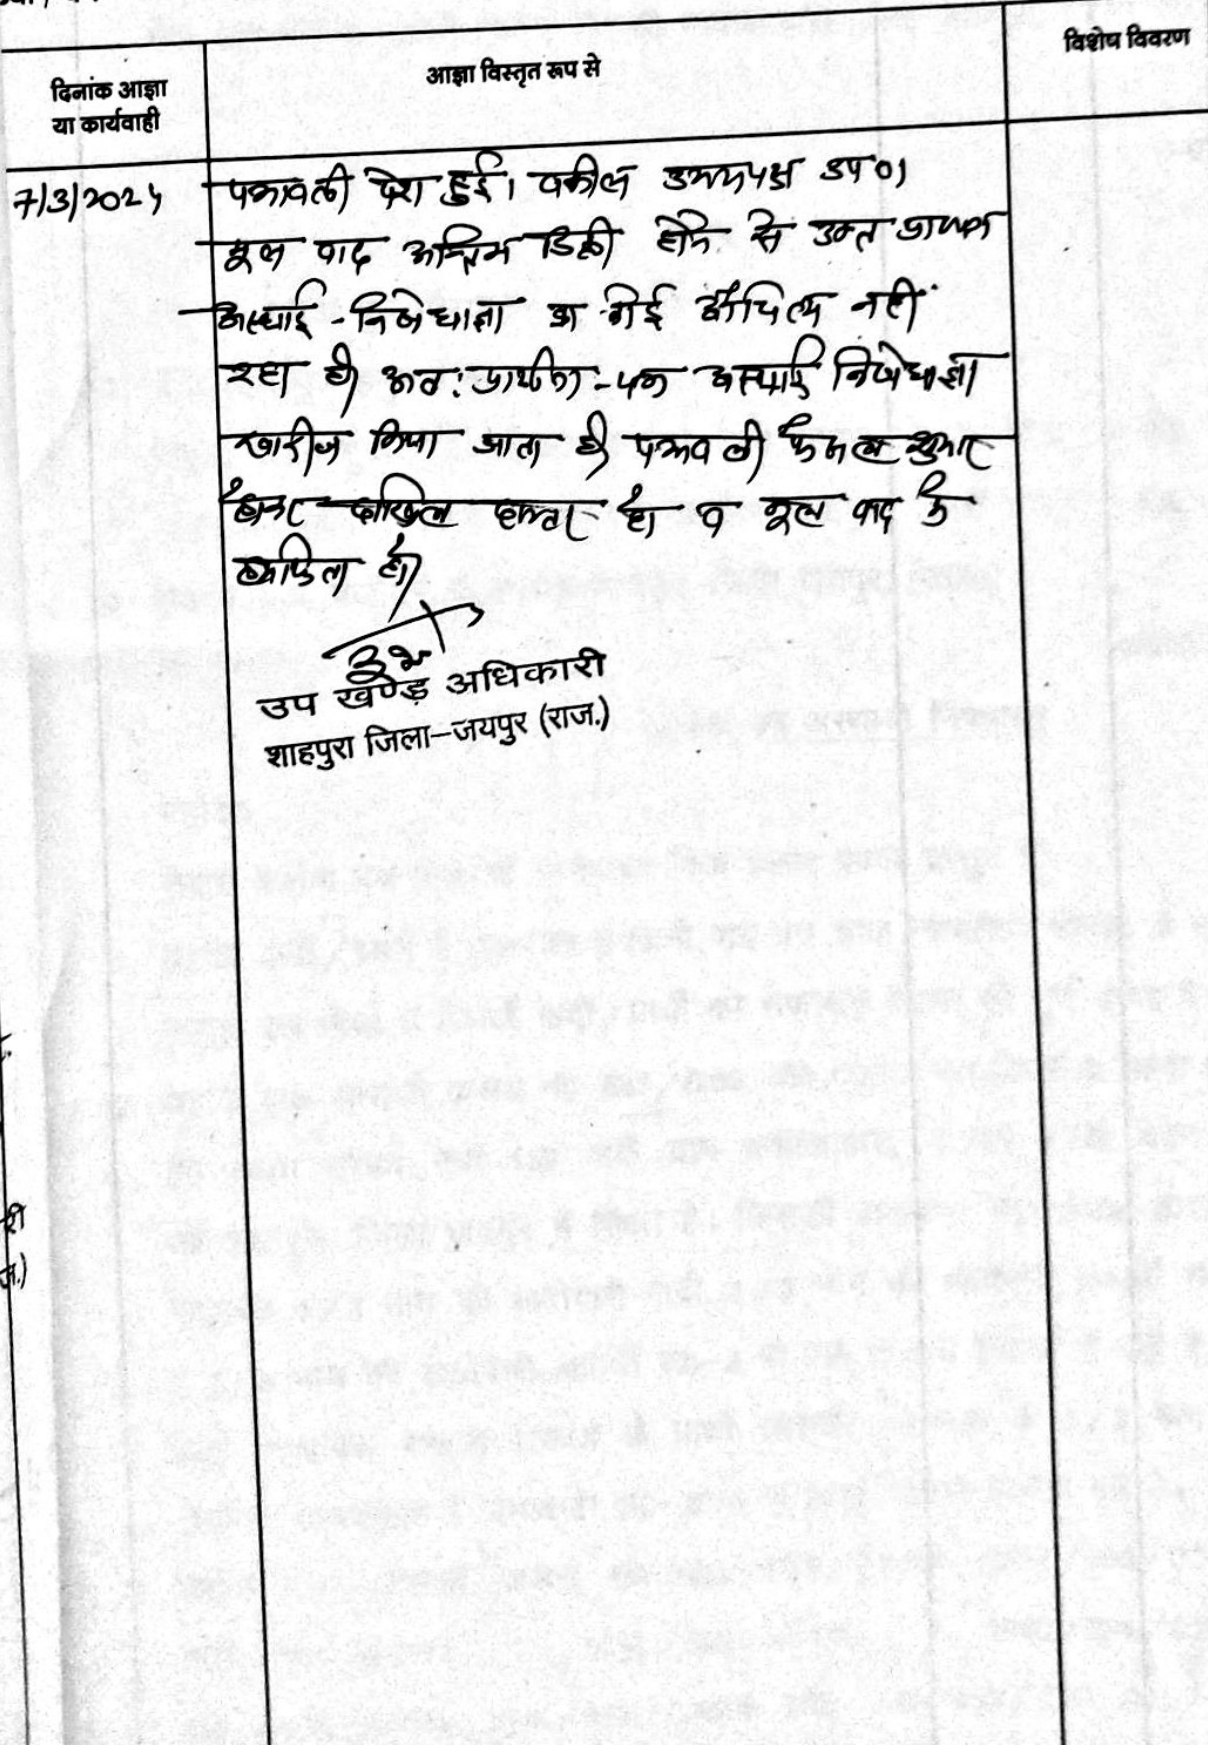 दिनांक आज्ञा
या कार्यवाही
आज्ञा विस्तृत रूप से
विशेष विवरण
7/3/2025
पत्रावली पेश हुई। वकील उभयपक्ष उप०।
मूल वाद अन्तिम डिक्री होने से उक्त प्रार्थना
अस्थाई निषेधाज्ञा का कोई औचित्य नहीं
रहा है। अतः प्रार्थना-पत्र अस्थाई निषेधाज्ञा
खारीज किया जाता है। पत्रावली फैसल शुमार
होकर दाखिल दफ्तर हो व मूल वाद के
हो।
उप खण्ड अधिकारी
शाहपुरा जिला-जयपुर (राज.)
री
ज.)